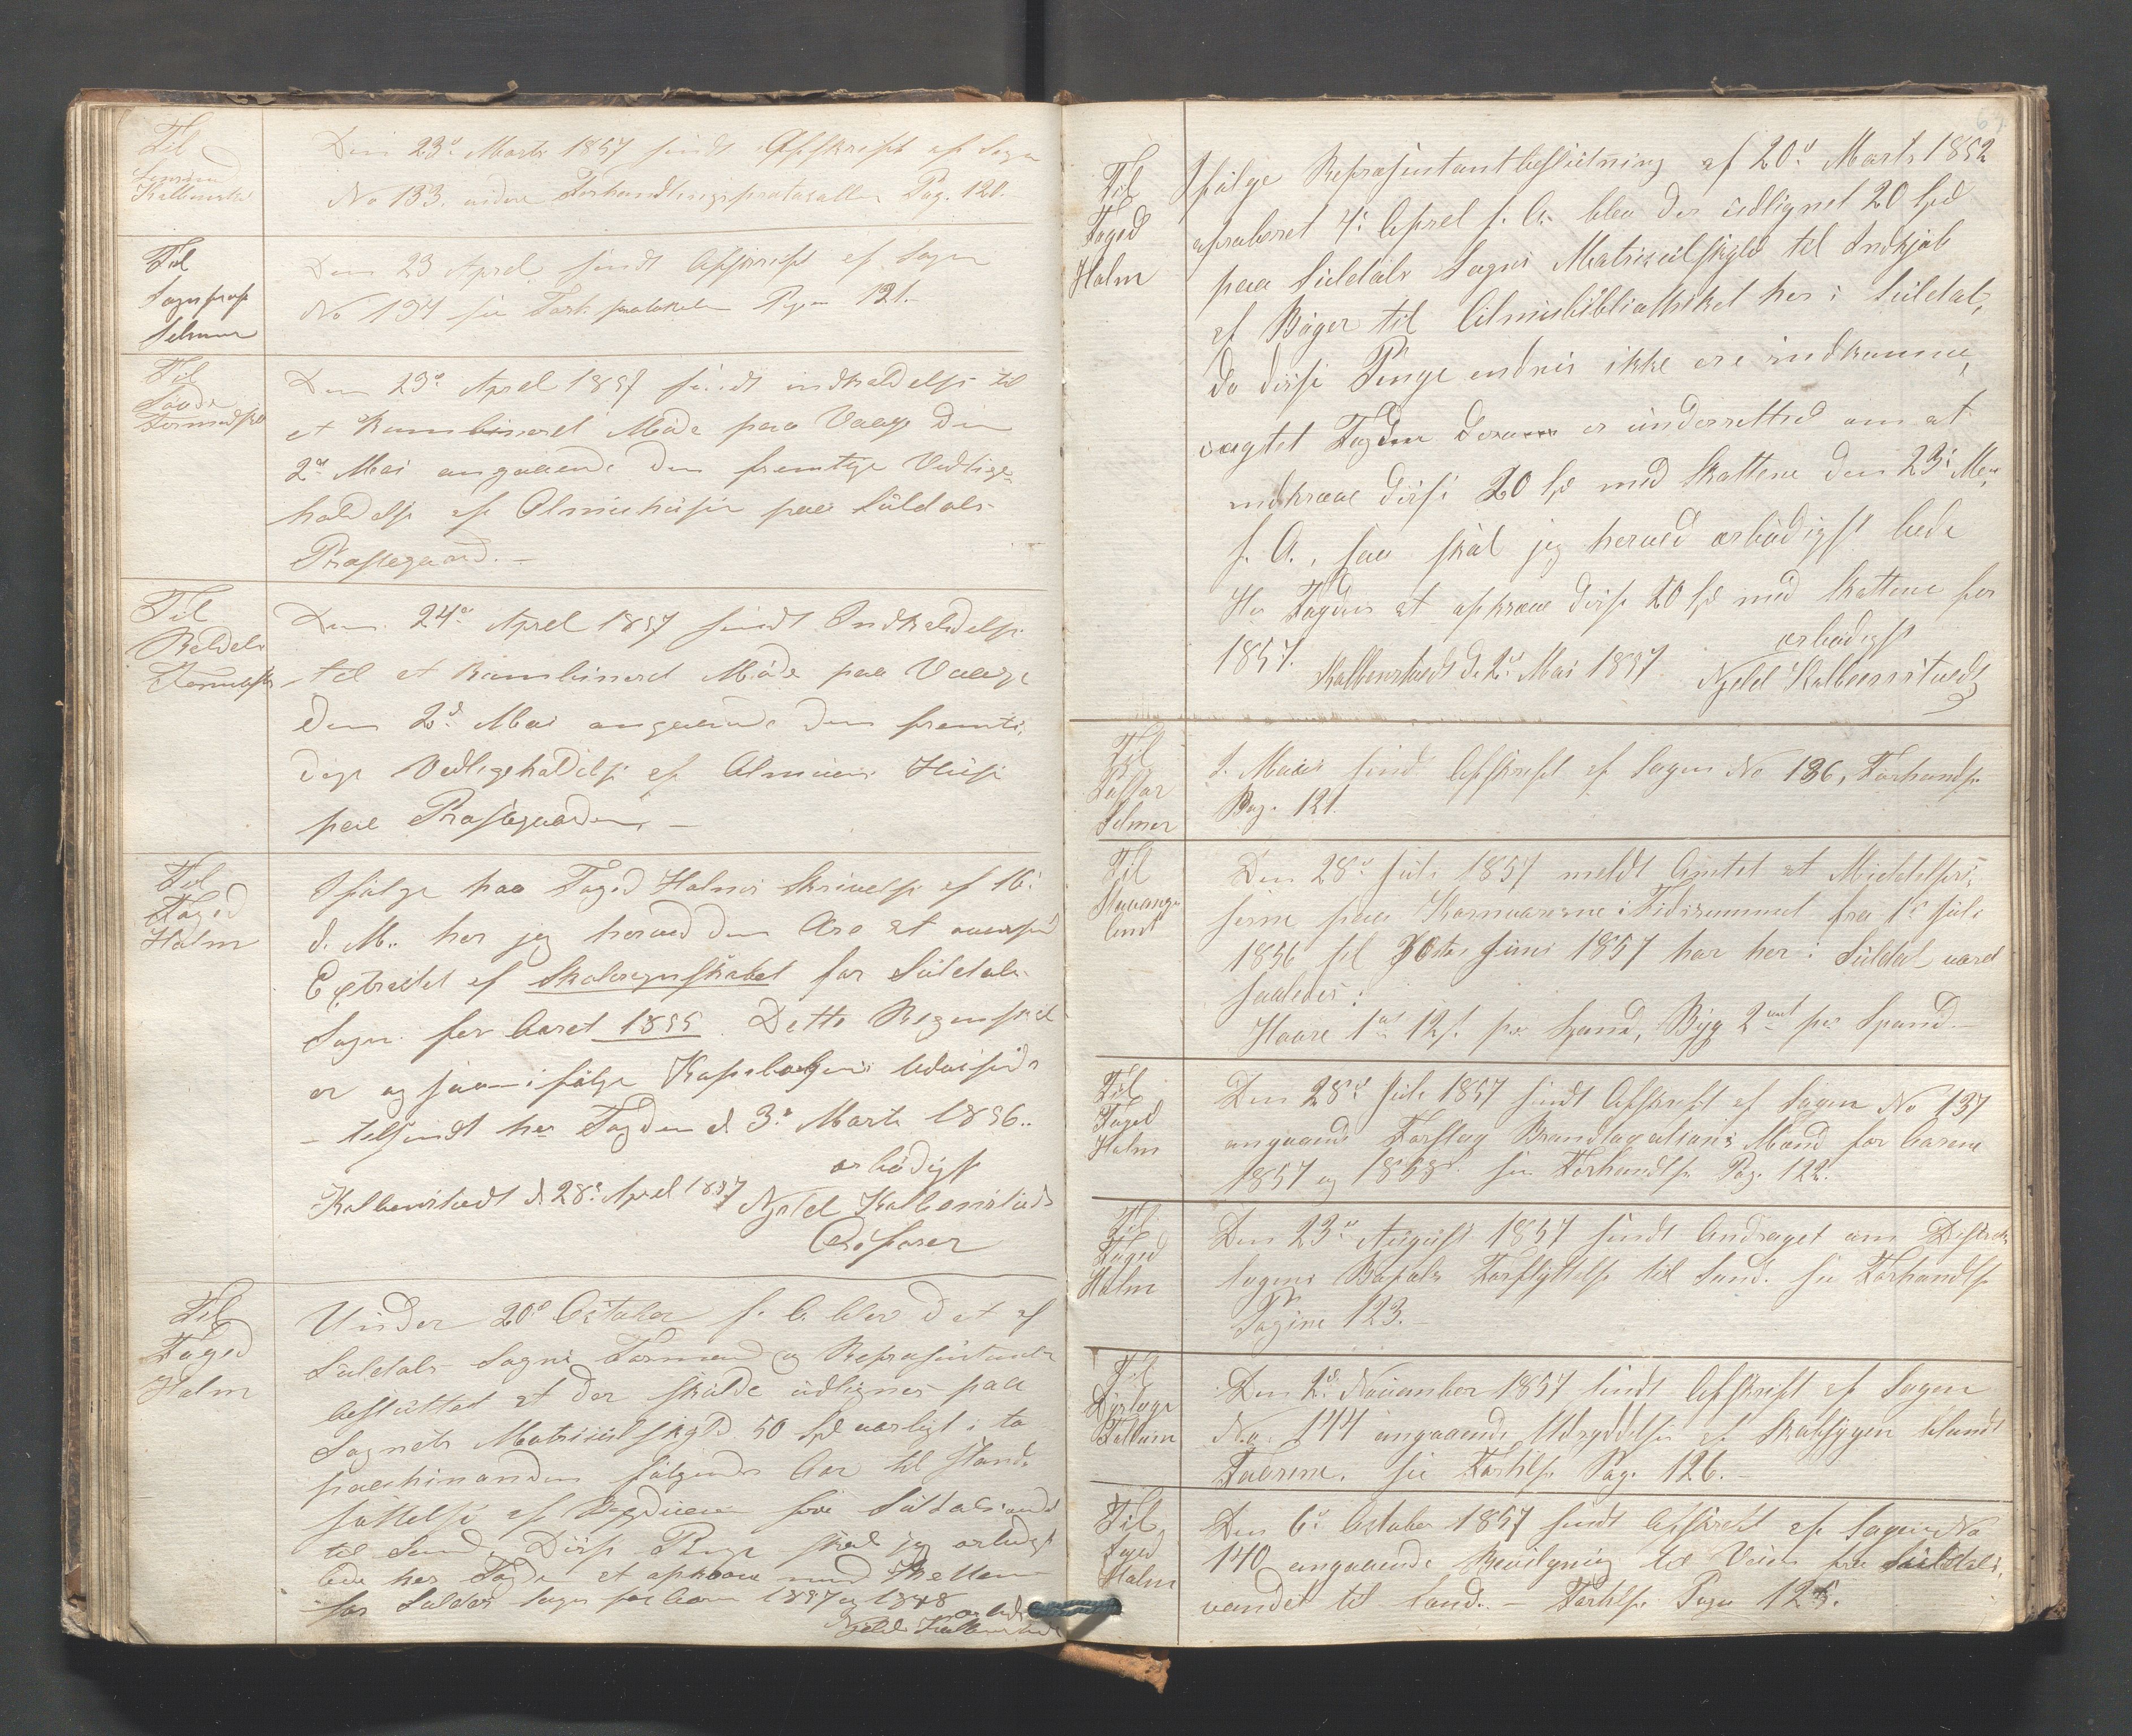 Til
Kolbenstv
Den 23d Marts 1857 sendt Afskrift af Sagen
No 133. vidre Forhandlingsprotocollen Pag. 120.
Til
Sogneprest
Selmer
Den 23 April sendt Afskrift af Sagen
No 134 see Forh. protokolen Pagin 121.
Til
Sands
Formandskb
Den 23d April 1857 sendt indkaldelse til
et kombineret Møde paa Vaage den
2den Mai angaaende den fremtige Vedlige-
holdelse af Almuehuset paa Suldals
Præstegaard. -
Til
Jelds
Formandsk
Den 24d April 1857 sendt Indkaldelse
til et kombineret Møde paa Vaage
den 2d Mai angaaende den fremti-
dige Vedligeholdelse af Almuens Huse
paa Præstegaarden. -
Til
Foged
Holm
Ifølge hær Foged Holms Skrivelse af 16:
d. M.. har jeg herved den Ære at oversende
Extractet af Skoleregnskabet for Suldals
Sogn for Aaret 1855. Dette Regnskab
er og saa ifølge Kopiebogens Udvisende
- tilsendt her Fogden d 3d Marts 1856..
ærbødigst
Kolbenstvedt d. 28d April 1857 Njeld Kolbenstvedt
Ordfører
Til
Foged
Holm
Under 20d October f. A. blev det af
Suldals Sogns Formænd og Repræsentanter
besluttet at der skulde udlignes paa
Sognets Matriculskyld 50 Spd aarligt i to
paahinanden følgende Aar til Istand-
sættelse af Veien fra Suldalsvandet
til Sand. Disse Penge skal jeg ærbødigst
bede her Fogden at opkræve med Skatten
for Suldals Sogn for Aaren 1857 og 1858
ærbødigst
Njeld Kolbenstvedt
Til
Foged
Holm
Ifølge Repræsentantbeslutning af 20d Marts 1852
aproberet 4: April s. A. blev der udlignet 20 Spd
paa Suldals Sogns Matriculskyld til Indkjøb
af Bøger til Almuebibliothiket her i Suldal,
da disse Penge endnu ikke ere indkomne,
Fogden er underrettet om at
indkræve disse 20 Spd med Skattene den 23:
f. A., saa skal jeg herved ærbødigst bede
Hr Fogden at opkræve disse 20 Spd med Skattene for
1857.
ærbødigst
Kolbenstvedt d. 2d Mai 1857 Njeld Kolbeenstvedt
Til
Pastor
Selmer
Mai sendt Afskrift af Sagen No 136, Forhandls.
Pag. 121.
Til
Stavanger
Amt
Den 28d Juli 1857 meldt Amtet at Middelpri-
serne paa Kornvarerne i Tidsrummet fra 1d Juli
1856 til 30te Juni 1857 har her i Suldal været
saaledes:
Havre 1 12 s. pr Spand, Byg 2 pr Spand. -
Til
Foged
Holm
Den 28d Juli 1857 sendt Afskrift af Sagen No 137
angaaende Forslag Mænd for Aarene
1857 og 1858. see Forhandls. Pag. 122.
Til
Foged
Holm
Den 23d August 1857 sendt Andraget om
lægens Bopæls Forflyttelse til Sand. see Forhandls
Pagina 123. -
Til
Dyrlæge
Den 2d November 1857 sendt Afskrift af Sagen
No. 144 angaaende Udryddelse af Skabsygen blandt
Faarene. see Forhls. Pag. 126. -
Til
Foged
Holm
Den 6d October 1857 sendt Afskrift af Sagen No
140 angaaende Bevilgning til Veien fra Suldals-
vandet til Sand. - Forhls. Pagin 125.